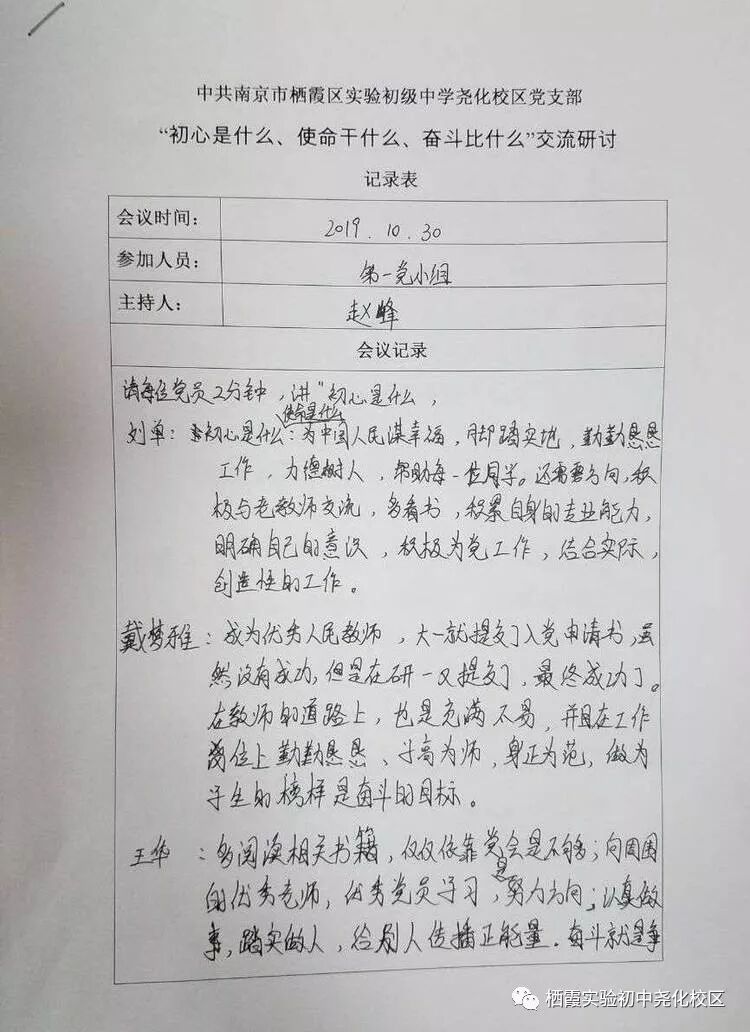 中共南京市栖霞区实验初级中学尧化校区党支部
“初心是什么、使命干什么、奋斗比什么”交流研讨
记录表
会议时间： 2019.10.30
参加人员： 第一党小组
主持人： 赵峰
会议记录
请每位党员2分钟，讲“初心是什么，
使命是什么
刘单：初心是什么：为中国人民谋幸福，脚踏实地，勤勤恳恳
工作，力德树人，帮助每一位同学。还需要方向，积
极与老教师交流，多看书，积累自身的专业能力，
明确自己的意识，积极为党工作，结合实际，
创造性的工作。
戴梦雅：成为优秀人民教师，大一就提交了入党申请书，虽
然没有成功，但是在研一又提交了，最终成功了。
在教师的道路上，也是充满不易，并且在工作
岗位上勤勤恳恳、学高为师，身正为范，做为
学生的榜样是奋斗的目标。
王华：多阅读相关书籍，仅仅依靠党会是不够；向周围
的优秀老师，优秀党员学习，努力方向；认真做
事，踏实做人，给别人传播正能量．奋斗就是争
栖霞实验初中尧化校区